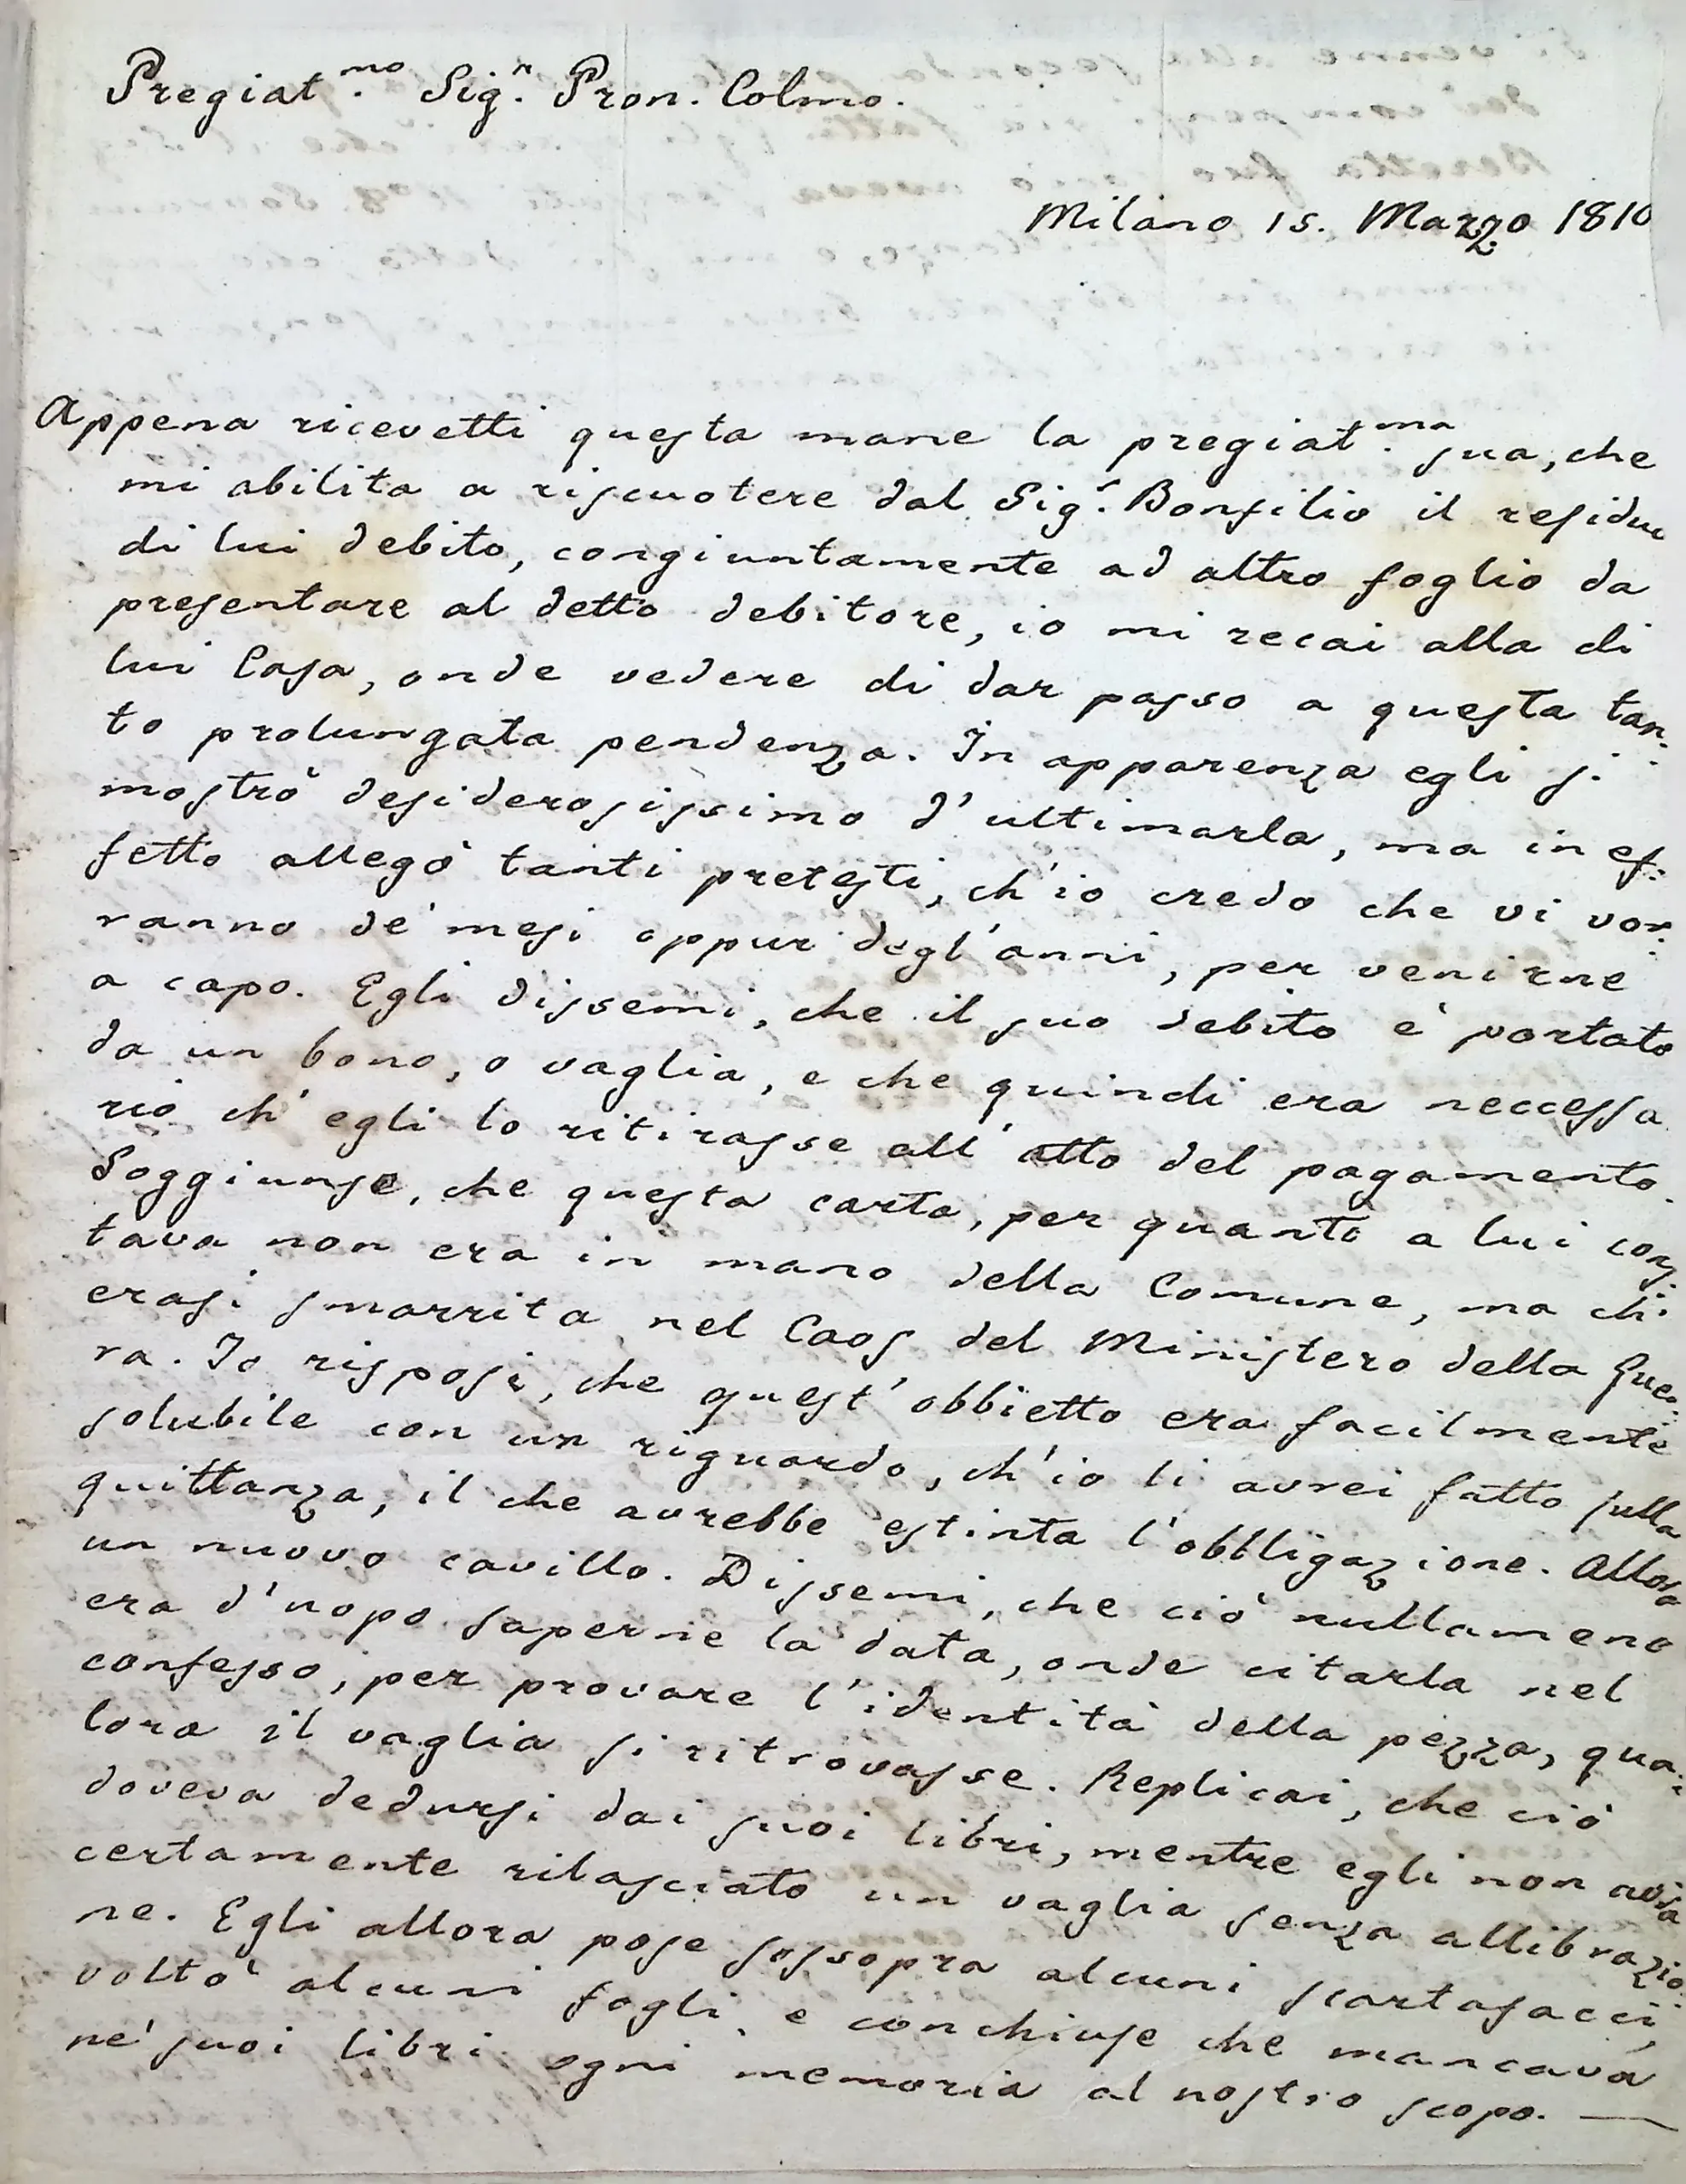 Pregiat.mo Sig.r Pron. Colmo.
Milano 15. Marzo 1810
Appena ricevetti questa mane la pregiat.ma sua, che
mi abilita a riscuotere dal Sig.r Bonfilio il residuo
di lui debito, congiuntamente ad altro foglio da
presentare al detto debitore, io mi recai alla di
lui Casa, onde vedere di dar passo a questa tan:
to prolungata pendenza. In apparenza egli si
mostrò desiderosissimo d'ultimarla, ma in ef:
fetto allegò tanti pretesti, ch'io credo che vi vor:
ranno de' mesi oppur degl'anni, per venirne
a capo. Egli dissemi, che il suo debito è portato
da un bono, o vaglia, e che quindi era neccessa
rio ch'egli lo ritirasse all'atto del pagamento.
Soggiunse, che questa carta, per quanto a lui cons:
tava non era in mano della Comune, ma ch:
erasi smarrita nel Caos del Ministero della Guer:
ra. Io risposi, che quest'obbietto era facilmente
solubile con un riguardo, ch'io li avrei fatto sulla
quittanza, il che avrebbe estinta l'obbligazione. Allora
un nuovo cavillo. Dissemi, che ciò nullameno
era d'uopo saperne la data, onde citarla nel
confesso, per provare l'identità della pezza, qua:
lora il vaglia si ritrovasse. Replicai, che ciò
doveva dedursi dai suoi libri, mentre egli non avra
certamente rilasciato un vaglia senza allibrazio:
ne. Egli allora pose sossopra alcuni scartafacci,
voltò alcuni fogli, e conchiuse che mancava
ne' suoi libri ogni memoria al nostro scopo. —